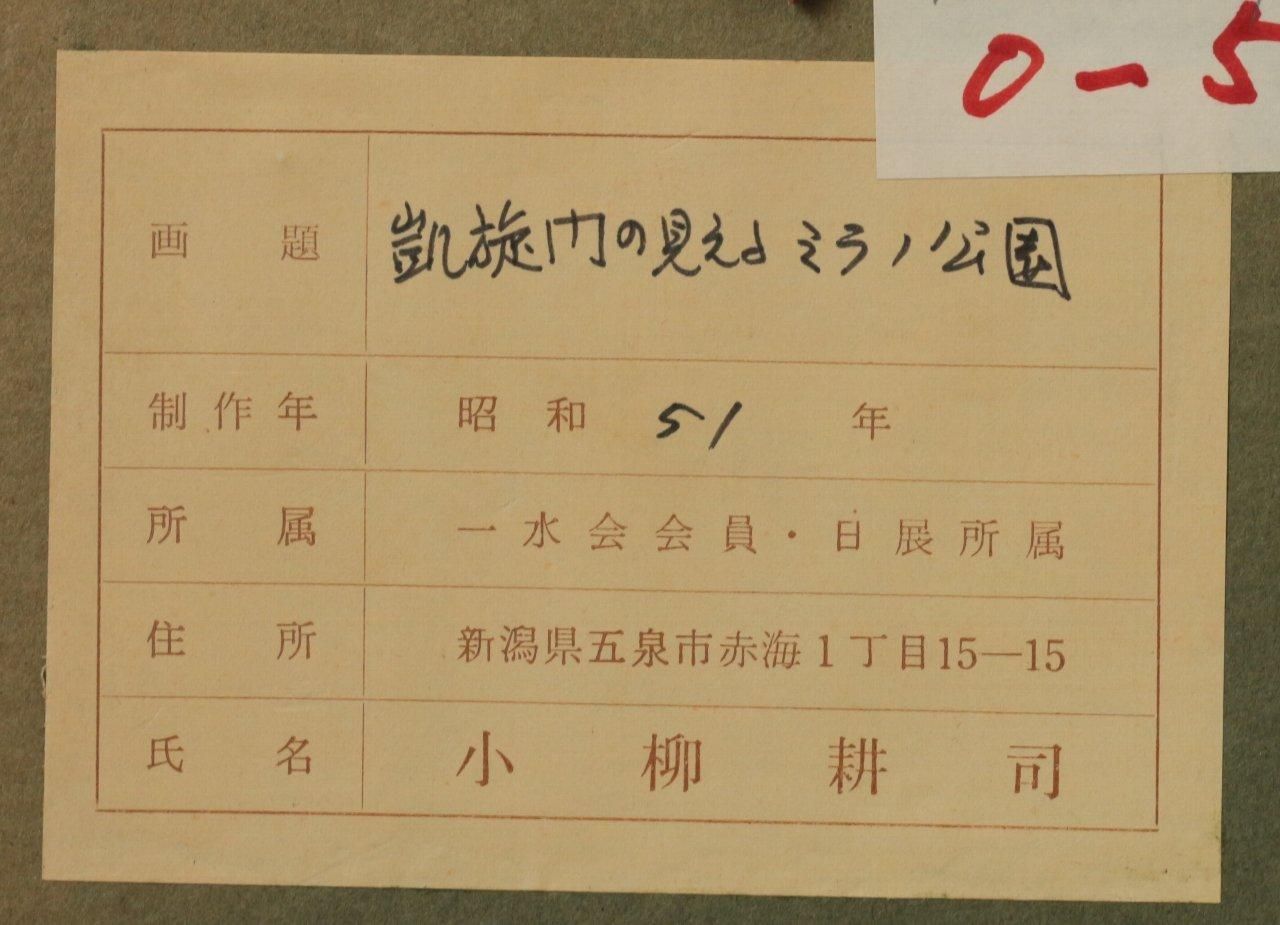 0-5
画題 凱旋門の見えるミラノ公園
制作年 昭和 51 年
所属 一水会会員・日展所属
住所 新潟県五泉市赤海1丁目15―15
氏名 小柳耕司